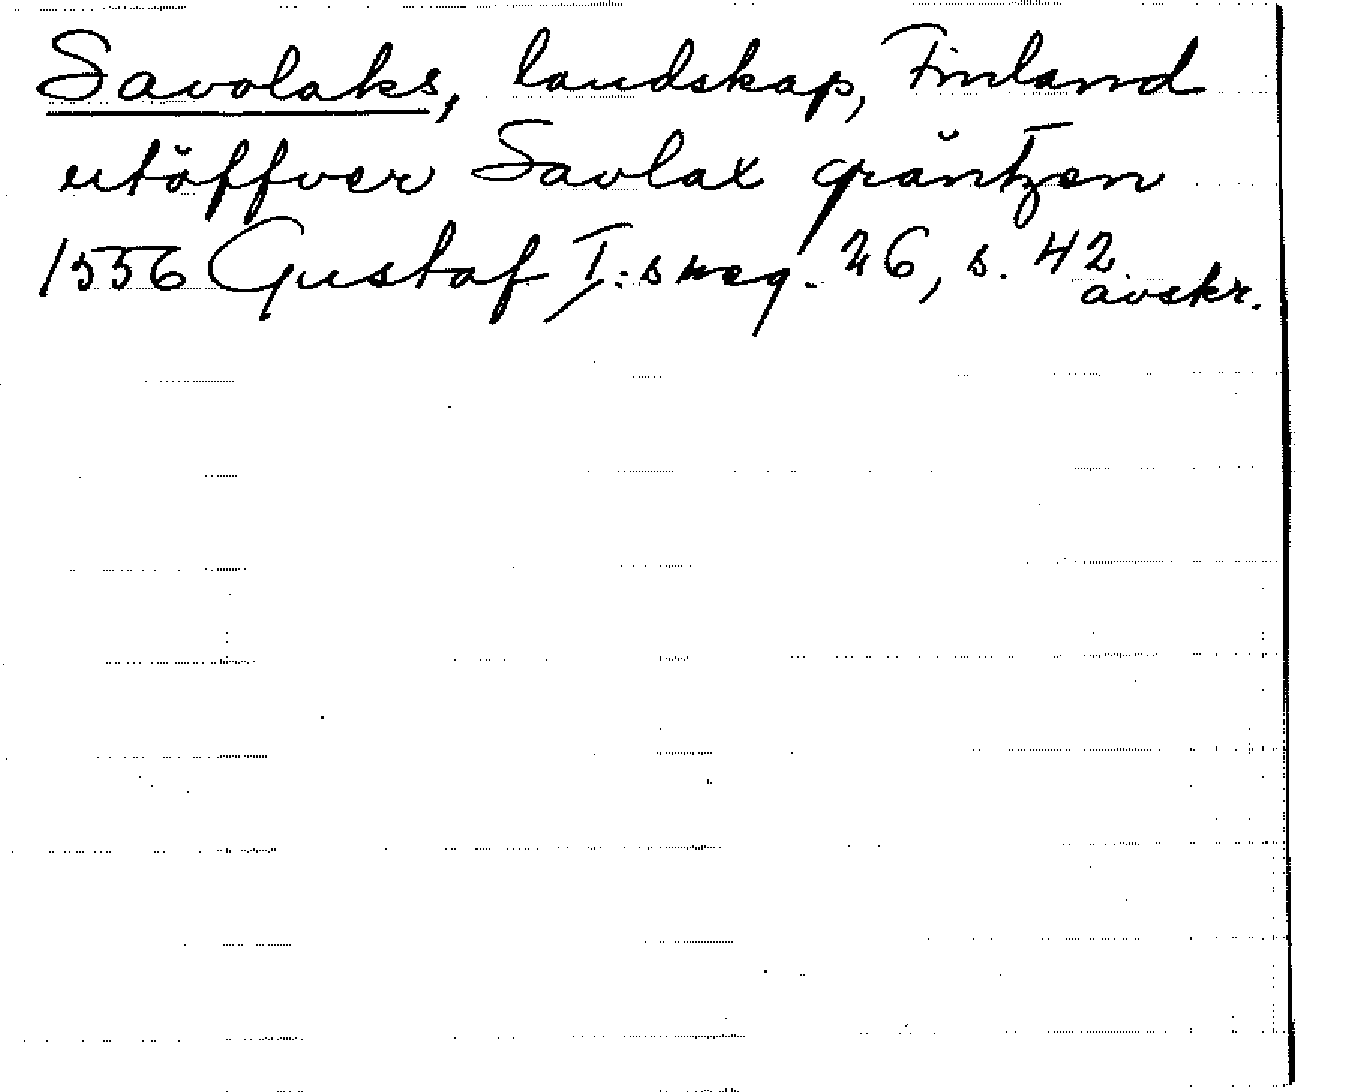 Savolaks, landskap, Finland
utöffver Savlax gräntzen
1556 Gustaf I:s reg. 26, s. 42
avskr.